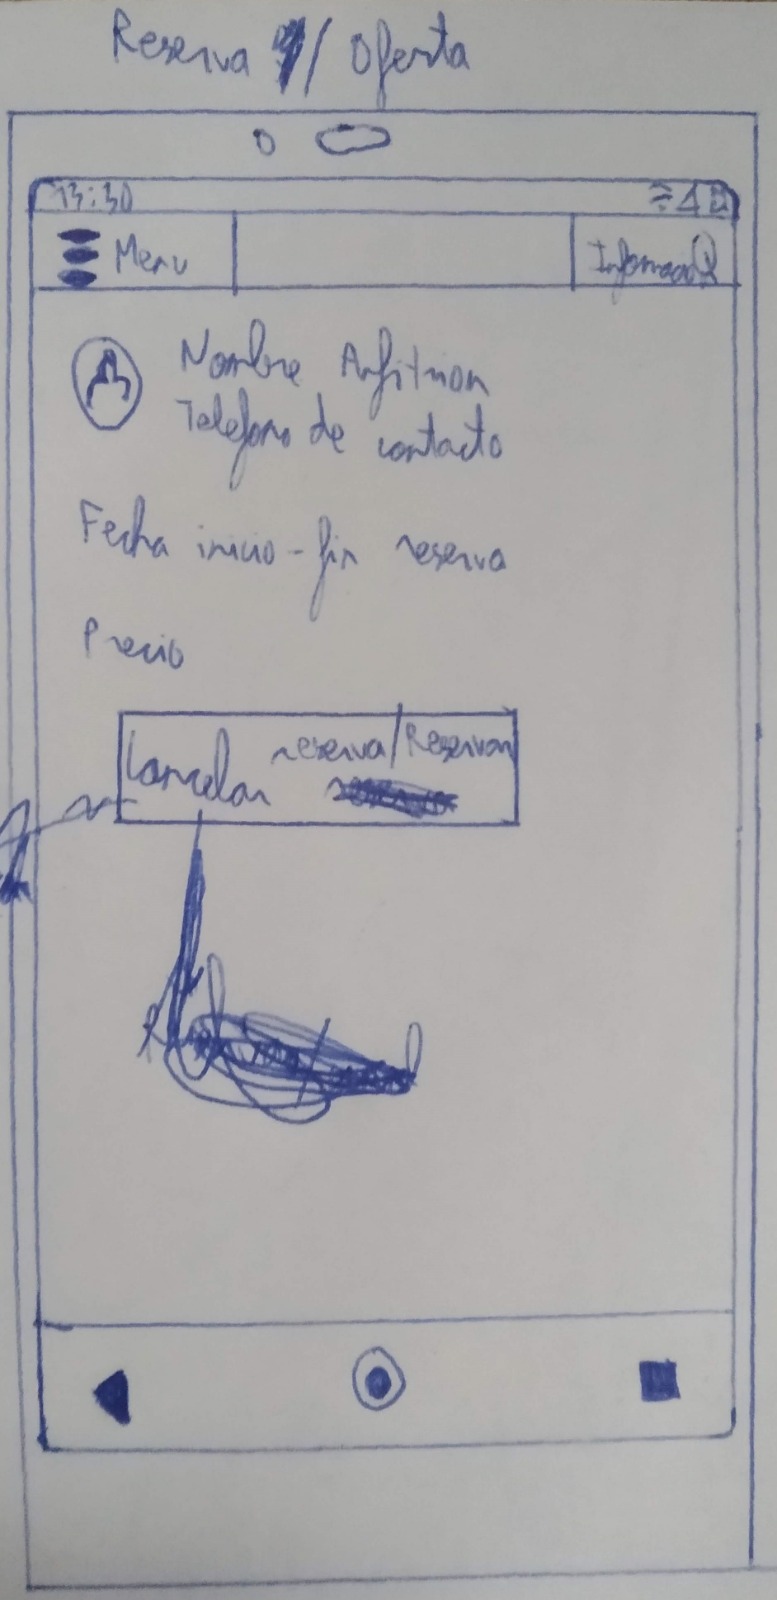 Reserva / Oferta
13:30
Menu
Nombre Anfitrion
Telefono de contacto
Fecha inicio - fin reserva
Precio
Cancelar reserva/Reservar